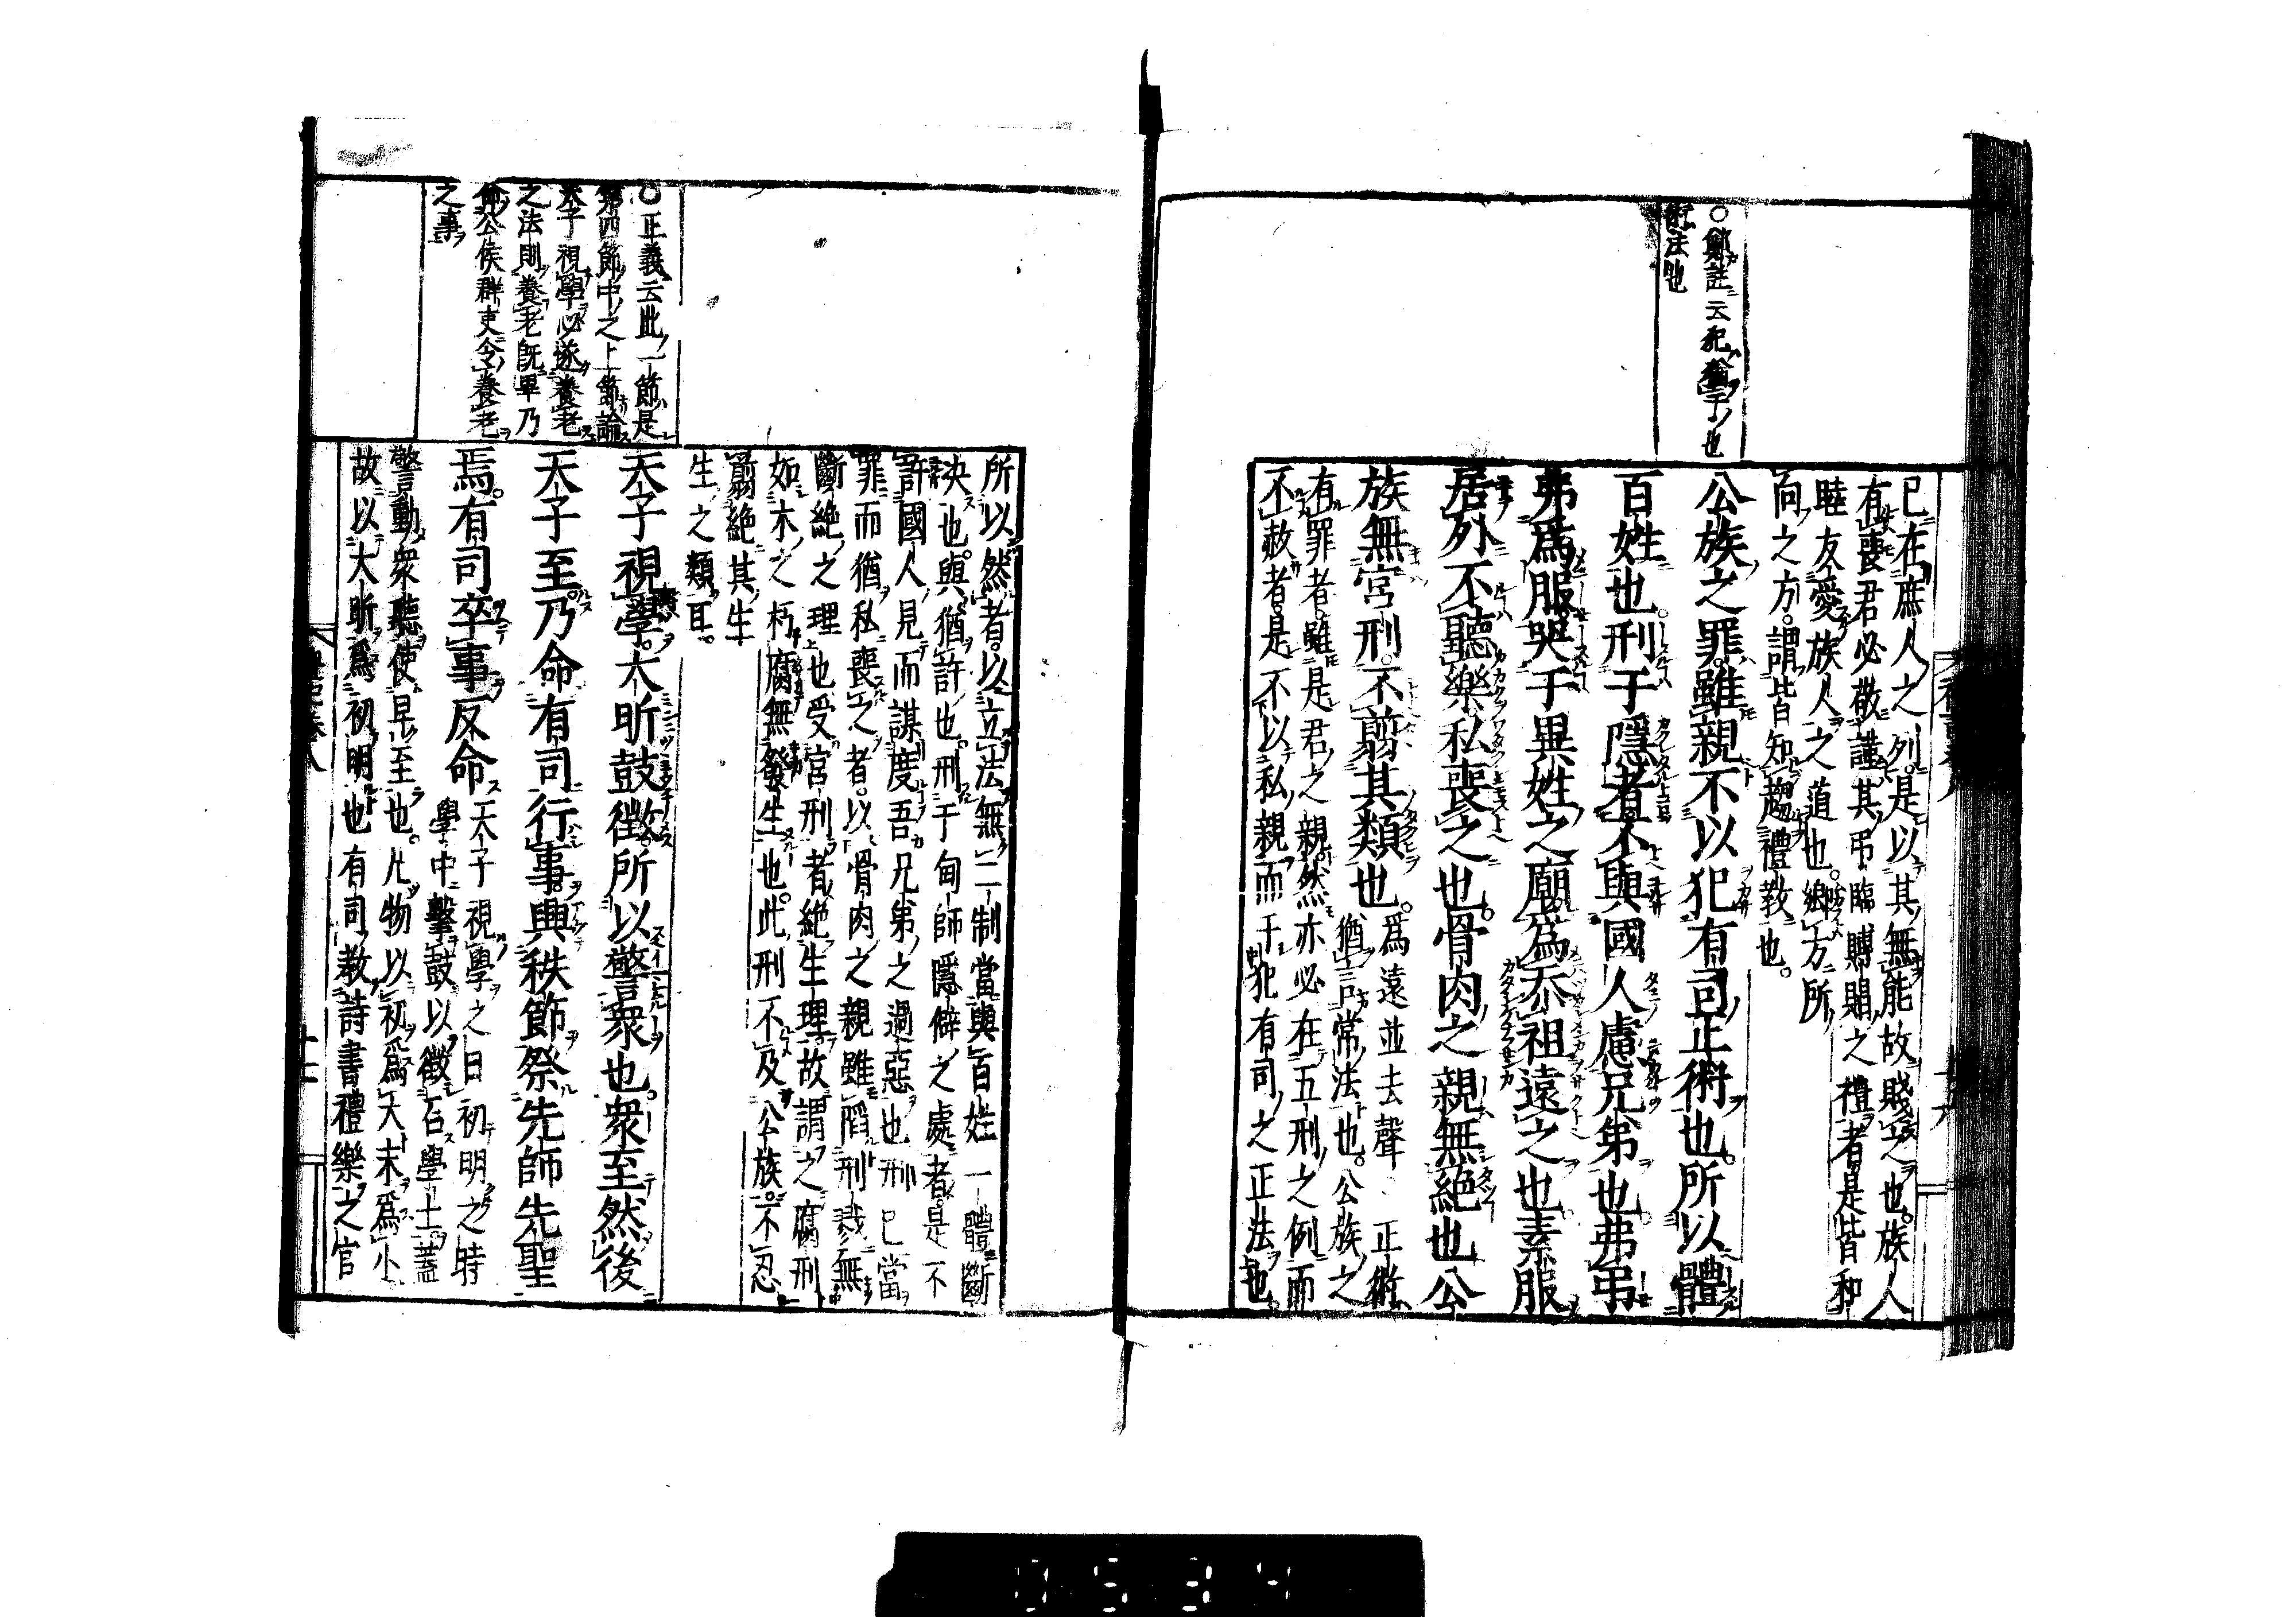 ○鄭註云犯猶干也
術法也
已在庶人之列是以其無能故賤之也族人
有喪君必敬謹其弔臨賻賵之禮者是皆和
睦友愛族人之道也鄉方所
向之方謂皆知趨禮教也
公族之罪雖親不以犯有司正術也所以體
百姓也刑于隱者不與國人慮兄弟也弗弔
弗爲服哭于異姓之廟爲忝祖遠之也素服
居外不聽樂私喪之也骨肉之親無絕也公
族無宮刑不翦其類也爲遠並去聲 正術
猶言常法也公族之
有罪者雖是君之親然亦必在五刑之例而
不赦者是不以私親而干犯有司之正法也
所以然者以立法無二制當與百姓一體斷
決也與猶許也刑于甸師隱僻之處者是不
許國人見而謀度吾兄弟之過惡也刑已當
罪而猶私喪之者以骨肉之親雖陷刑戮無
斷絕之理也受宮刑者絕生理故謂之腐刑
如木之朽腐無發生也此刑不及公族不忍
翦絕其生
生之類耳
○正義云此一節是
第四節中之上節論
天子視學必遂養老
之法則養老既畢乃
命公侯群吏令養老
之事
天子視學大昕鼓徵所以警衆也衆至然後
天子至乃命有司行事興秩節祭先師先聖
焉有司卒事反命天子視學之日初明之時
學中擊鼓以徵召學士蓋
警動衆聽使早至也凡物以初爲大末爲小
故以大昕爲初明也有司教詩書禮樂之官